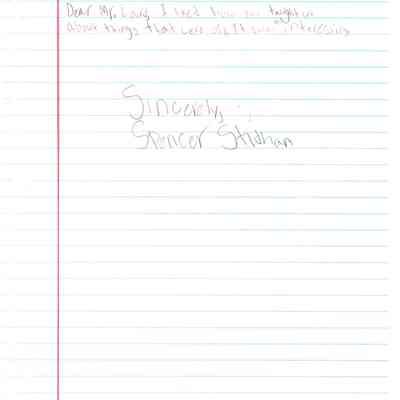 Dear Mr. I liked how you taught us
about things that were old. It was interesting
Sincerely,
Spencer